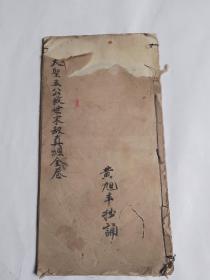 大聖五公救世末劫真經全卷
黄旭丰抄誦